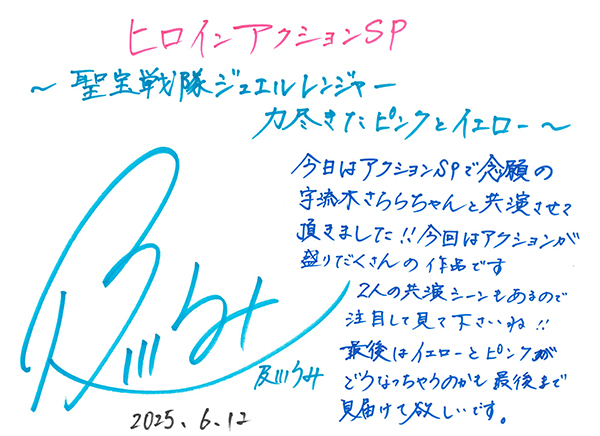 ヒロインアクションSP
～聖宝戦隊ジュエルレンジャー
力尽きたピンクとイエロー～
今日はアクションSPで念願の
宇流木さららちゃんと共演させて
頂きました!!今回はアクションが
盛りだくさんの作品です
2人の共演シーンもあるので
注目して見て下さいね!!
最後はイエローとピンクが
どうなっちゃうのかも最後まで
見届けて欲しいです。
及川うみ
及川うみ
2025.6.12